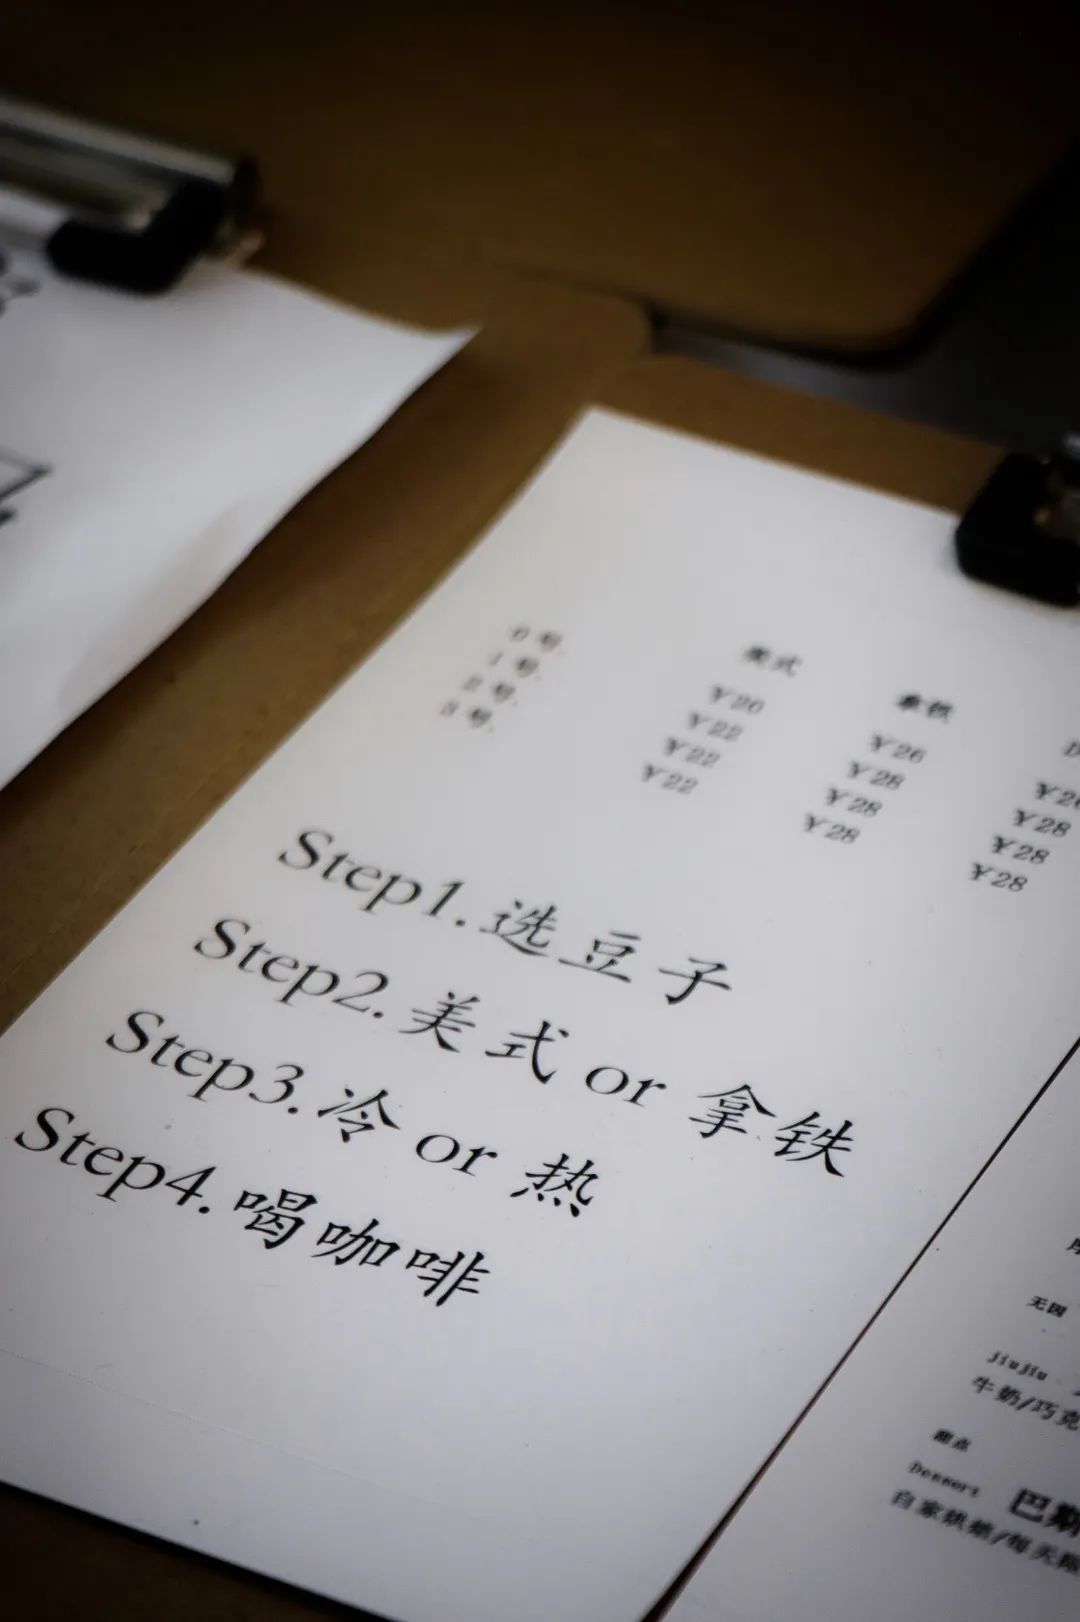 美式 拿铁
0号. ¥20 ¥26
1号. ¥22 ¥28 ¥28
2号. ¥22 ¥28 ¥28
3号. ¥22 ¥28 ¥28
Step1. 选豆子
Step2. 美式 or 拿铁
Step3. 冷 or 热
Step4. 喝咖啡
无因
jiujiu
牛奶/巧克
甜点
Dessert 巴斯
自家烘焙/每天